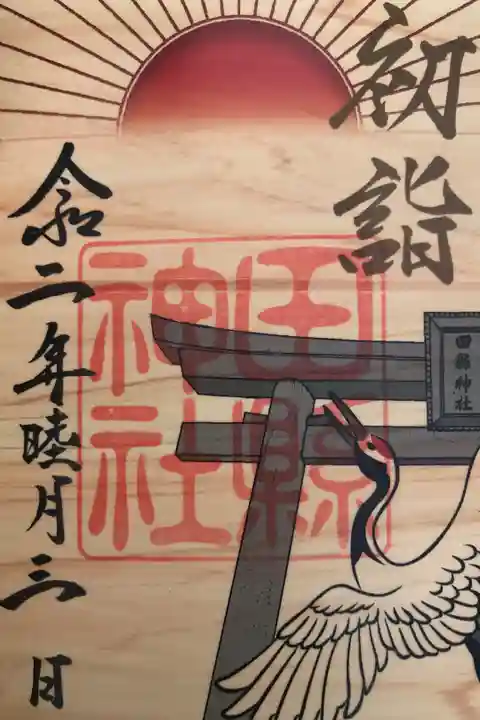 初詣
田縣神社
田縣神社
令和二年睦月三日